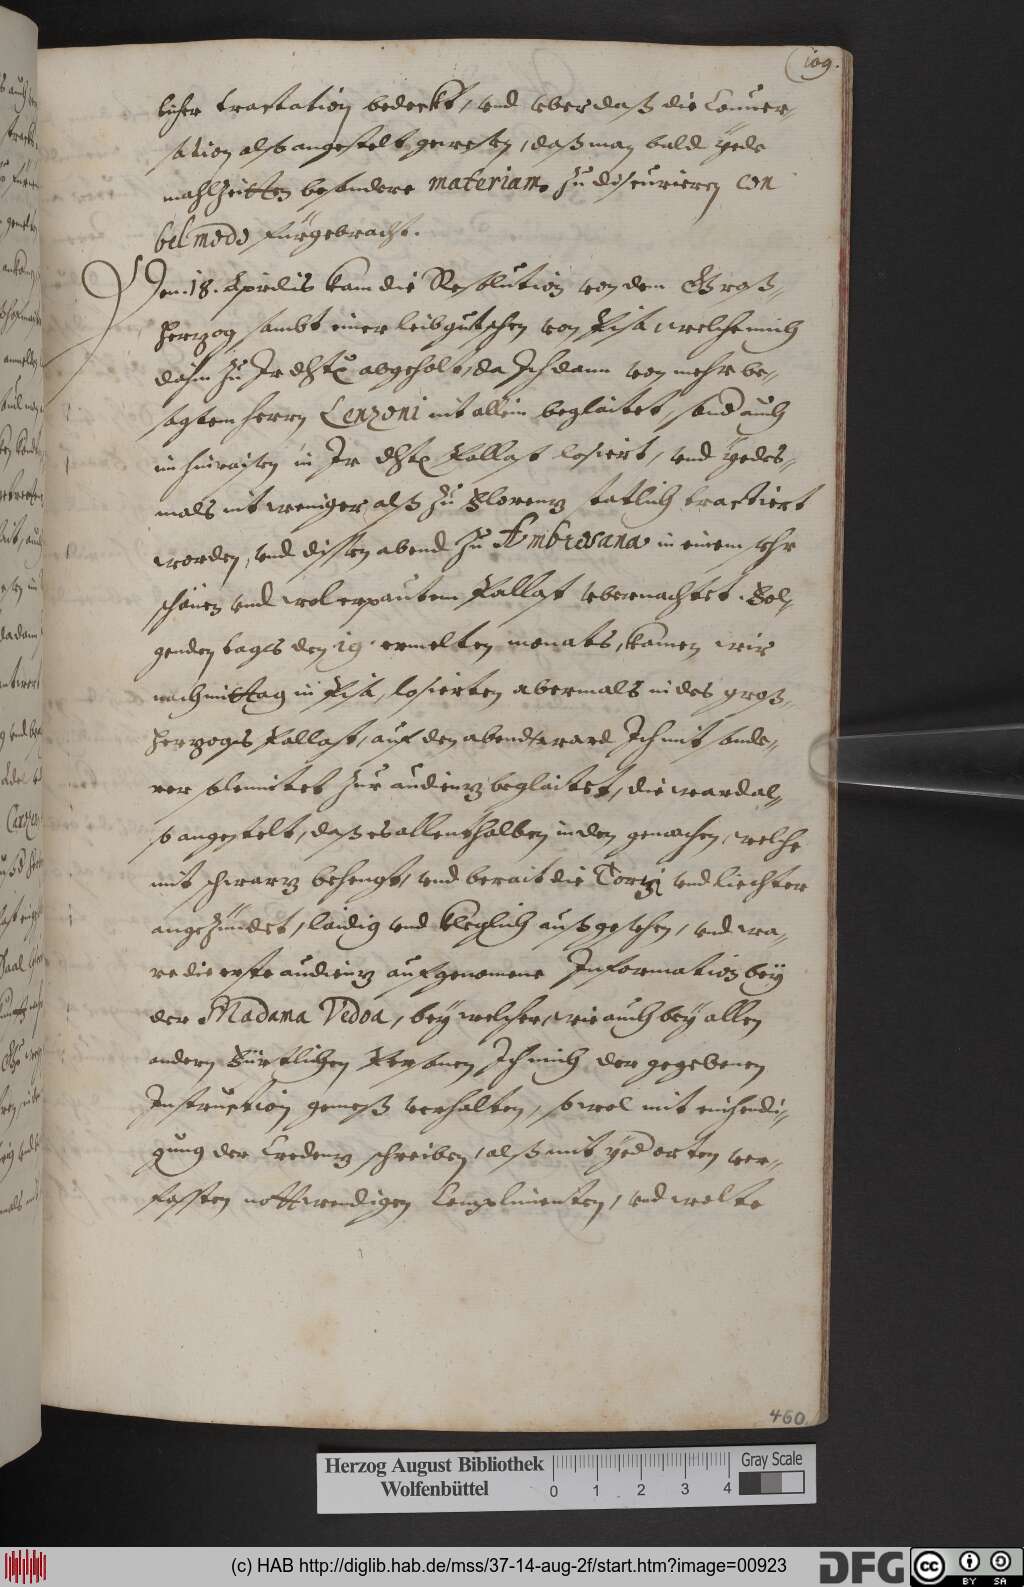 109.
licher tractation bedeckt, vnd vber daß die Conuer-
sation also angestelt gewesen, daß man bald yede
mahlzeitten besondere materiam zu discurieren con
bel modo fürgebracht.
Den 18. Aprilis kam die Resolution von dem Groß-
herzog sambt einer leibgutschen von Pisa, welche mich
dahin zu Ir dht abgeholt, da Ich dann von mehr be-
sagtem herrn Lenzoni nit allein beglaitet, sond auch
im hinraisen in Ir dht Pallast losiert, vnd yedes-
mals nit weniger alß zu Florenz statlich tractiert
worden, vnd dissen abend zu Ambrosana in einem sehr
schönen vnd wolerpautem Pallast vbernachtet. Fol-
genden tags den 19. ermelten monats, kamen wir
nachmittag in Pisa, losierten abermals in des groß-
herzogs Pallast, auf den abend ward Ich mit sonde-
rer solennitet zur audienz beglaitet, die ward al-
so angestelt, daß es allenthalben in den gemachen, welche
mit schwarz behengt, vnd berait die Torzi vnd liechter
angezündet, laidig vnd kleglich außgesehen, vnd wa-
re die erste audienz aufgenomene Information bey
der Madama Vedoa, bey welcher, wie auch bey allen
andern Fürstlichen Personen Ich mich der gegebenen
Instruction gemeß verhalten, sowol mit einhendi-
gung der Credenz schreiben, alß mit yed orten ver-
fassten nottwendigen Complimenten, vnd wolte
460
Herzog August Bibliothek
Wolfenbüttel
0 1 2 3 4
Gray Scale
(c) HAB http://diglib.hab.de/mss/37-14-aug-2f/start.htm?image=00923
DFG
cc BY SA